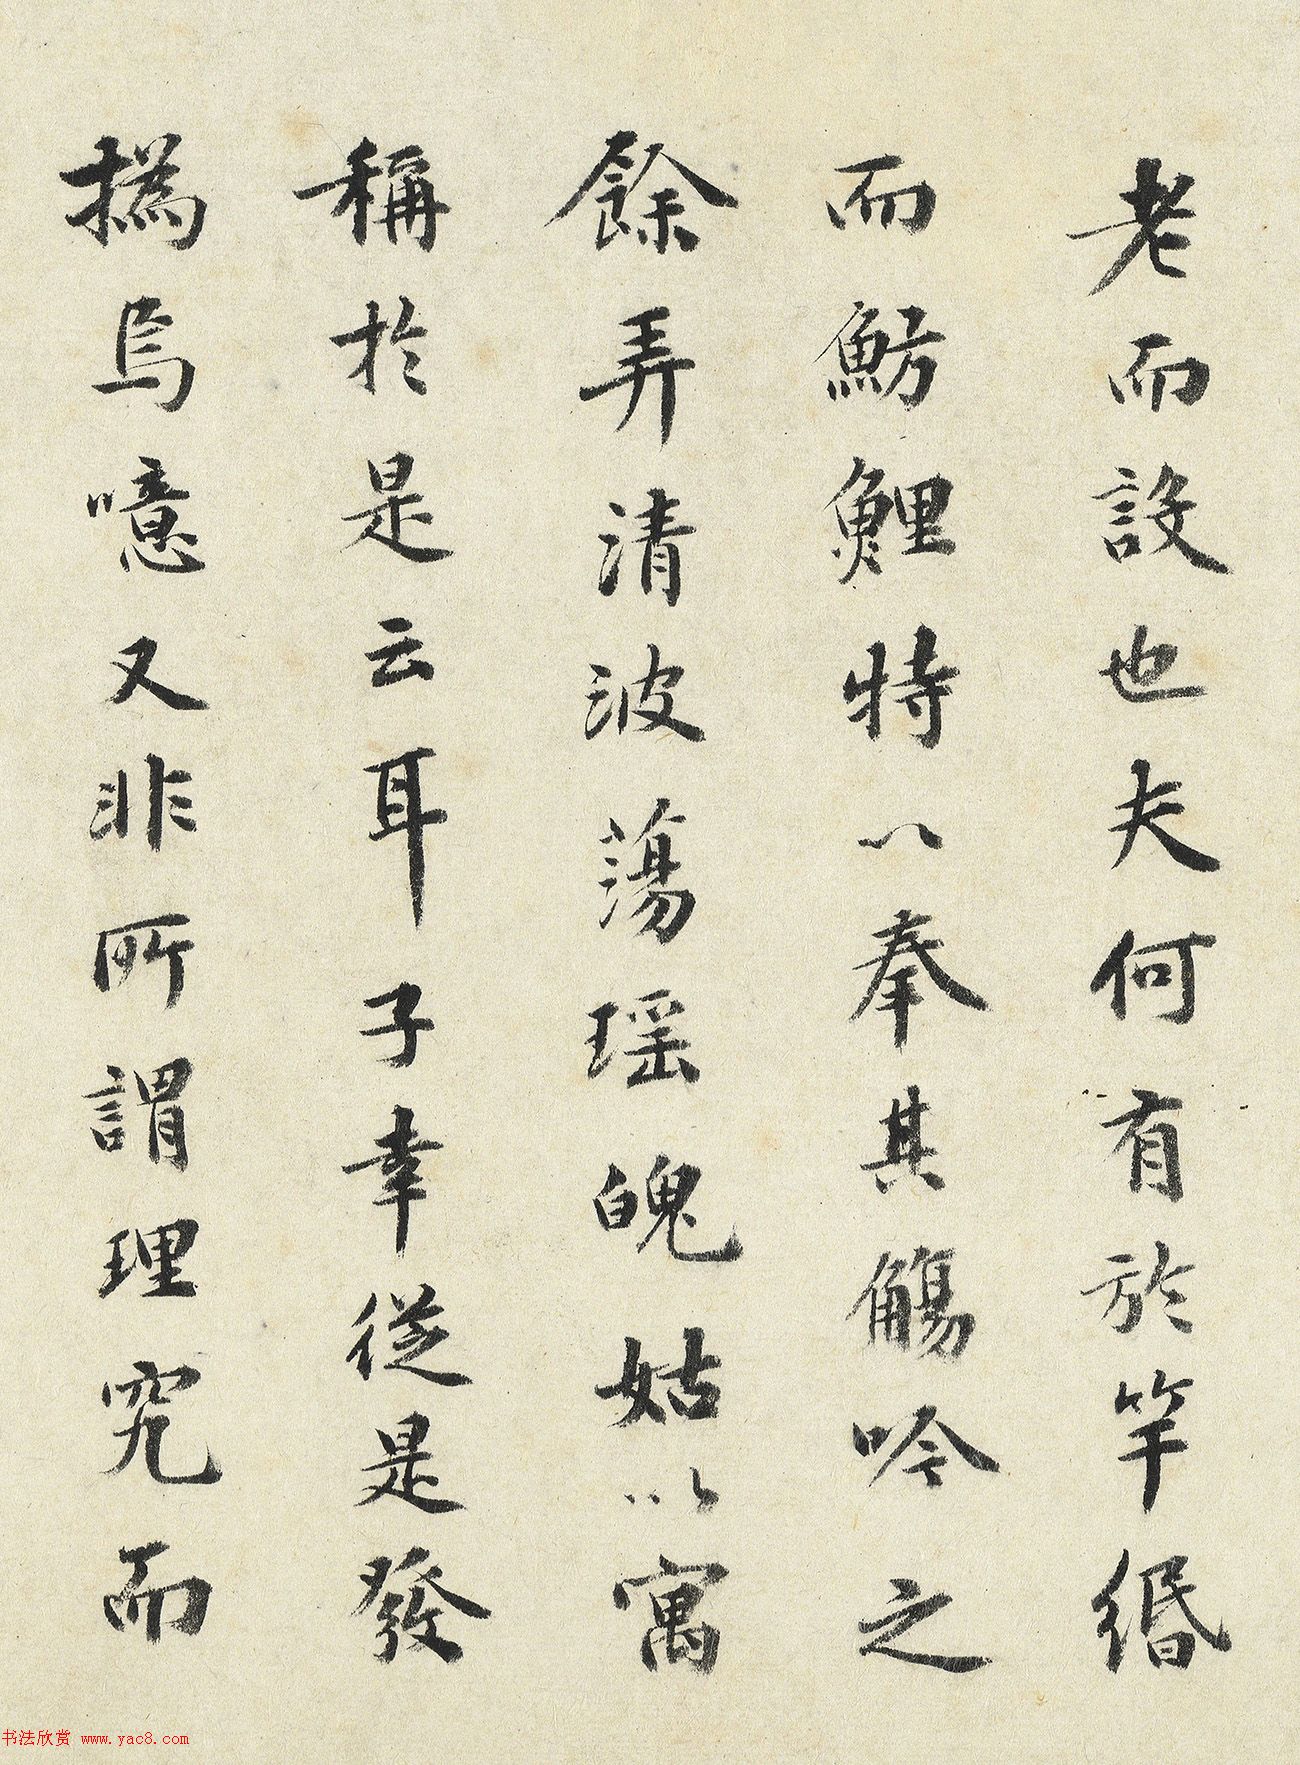 老而設也夫何有於竿緡
而魴鯉特以奉其觴吟之
餘弄清波蕩瑶魄姑以寓
稱於是云耳子幸從是發
撝焉噫又非所謂理究而
书法欣赏 www.yac8.com